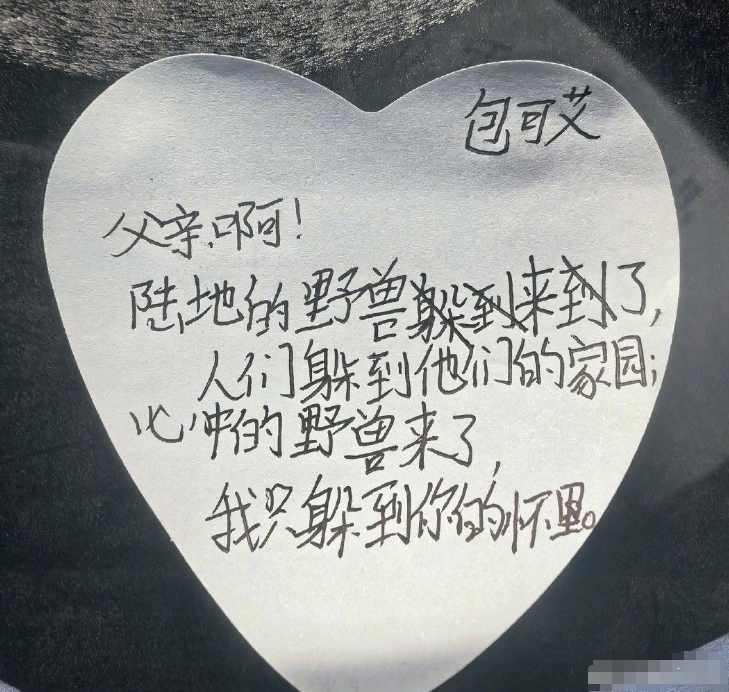 包可艾
父亲啊！
陆地的野兽来了，
人们躲到他们的家园；
心中的野兽来了，
我只躲到你的怀里。